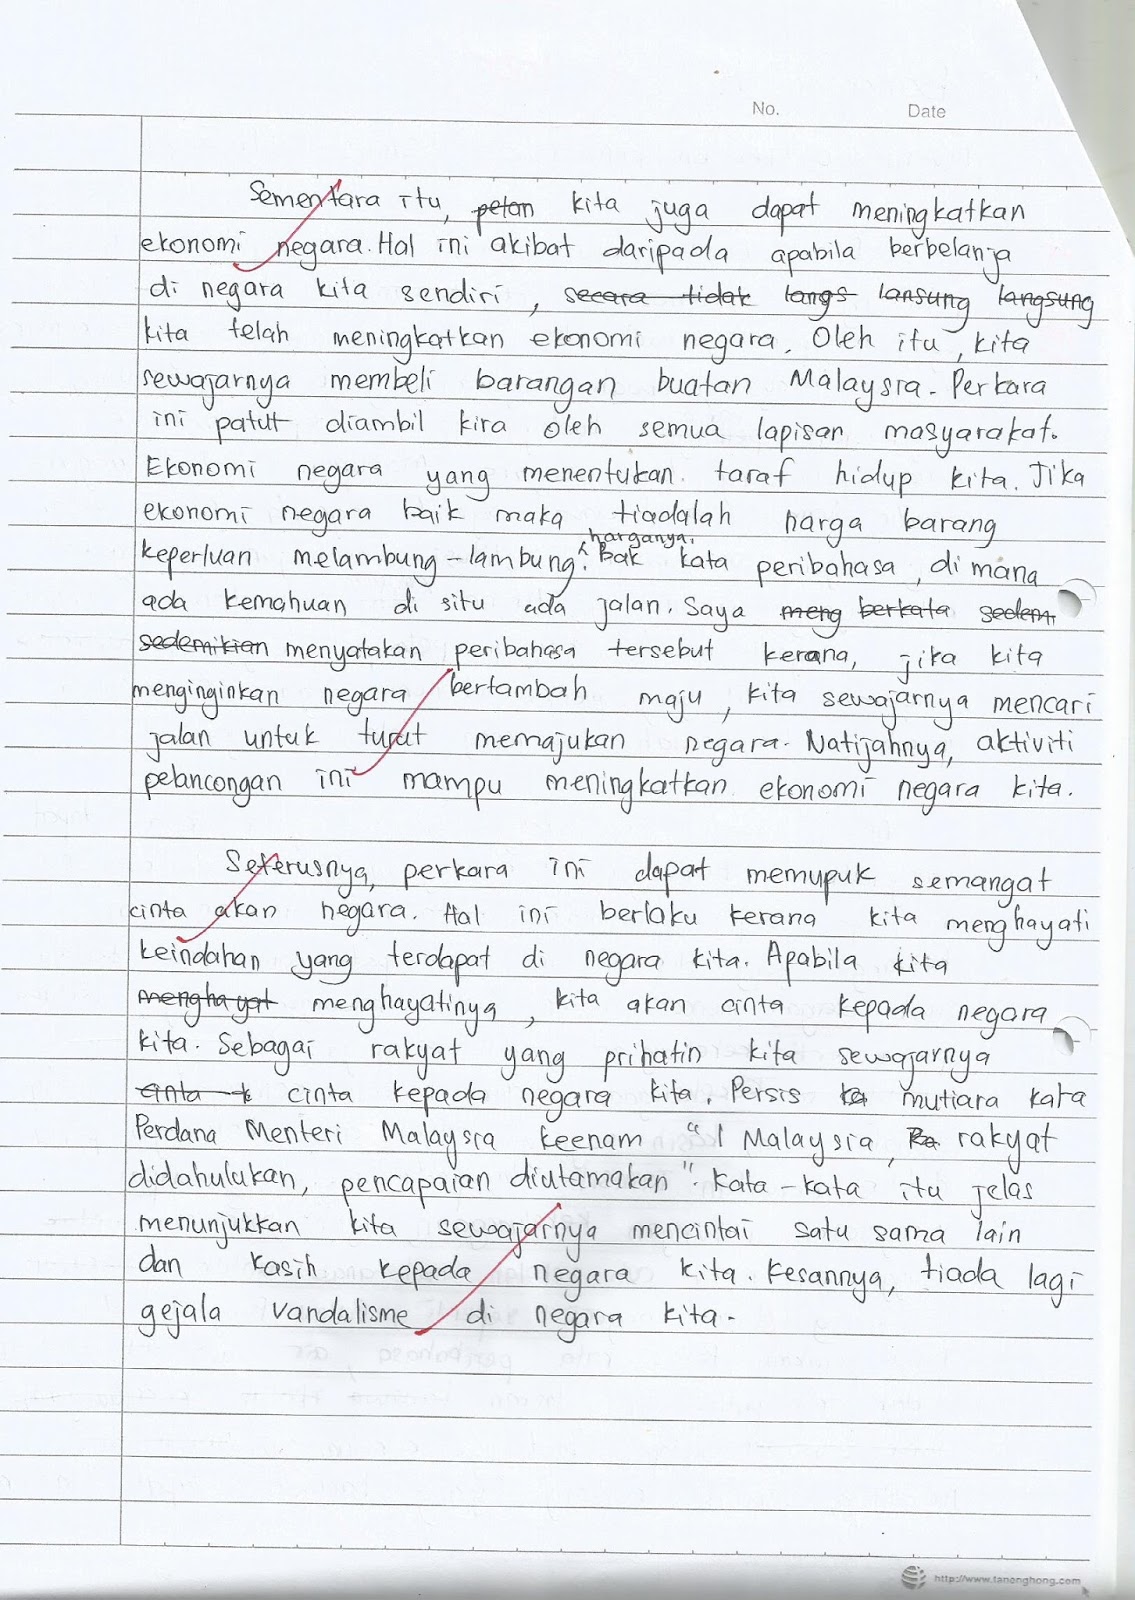 No. Date
Sementara itu, petan kita juga dapat meningkatkan
ekonomi negara. Hal ini akibat daripada apabila berbelanja
di negara kita sendiri, secara tidak langs lansung langsung
kita telah meningkatkan ekonomi negara. Oleh itu, kita
sewajarnya membeli barangan buatan Malaysia. Perkara
ini patut diambil kira oleh semua lapisan masyarakat.
Ekonomi negara yang menentukan taraf hidup kita. Jika
ekonomi negara baik maka tiadalah harga barang
harganya.
keperluan melambung-lambung. Bak kata peribahasa, di mana
ada kemahuan di situ ada jalan. Saya meng berkata sedem
sedemikian menyatakan peribahasa tersebut kerana, jika kita
menginginkan negara bertambah maju, kita sewajarnya mencari
jalan untuk turut memajukan negara. Natijahnya, aktiviti
pelancongan ini mampu meningkatkan ekonomi negara kita.
Seterusnya, perkara ini dapat memupuk semangat
cinta akan negara. Hal ini berlaku kerana kita menghayati
keindahan yang terdapat di negara kita. Apabila kita
menghayat menghayatinya, kita akan cinta kepada negara
kita. Sebagai rakyat yang prihatin kita sewajarnya
cinta k cinta kepada negara kita. Persis ka mutiara kata
Perdana Menteri Malaysia keenam "1 Malaysia, Ra rakyat
didahulukan, pencapaian diutamakan". Kata-kata itu jelas
menunjukkan kita sewajarnya mencintai satu sama lain
dan kasih kepada negara kita. Kesannya, tiada lagi
gejala vandalisme di negara kita.
http://www.tanonghong.com